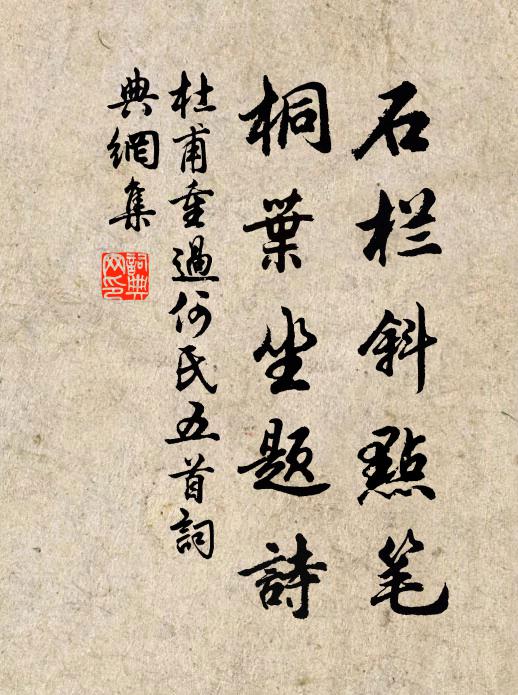 石栏斜點笔
桐葉坐題詩
杜甫重過何氏五首詞
典網集
詞典
网印